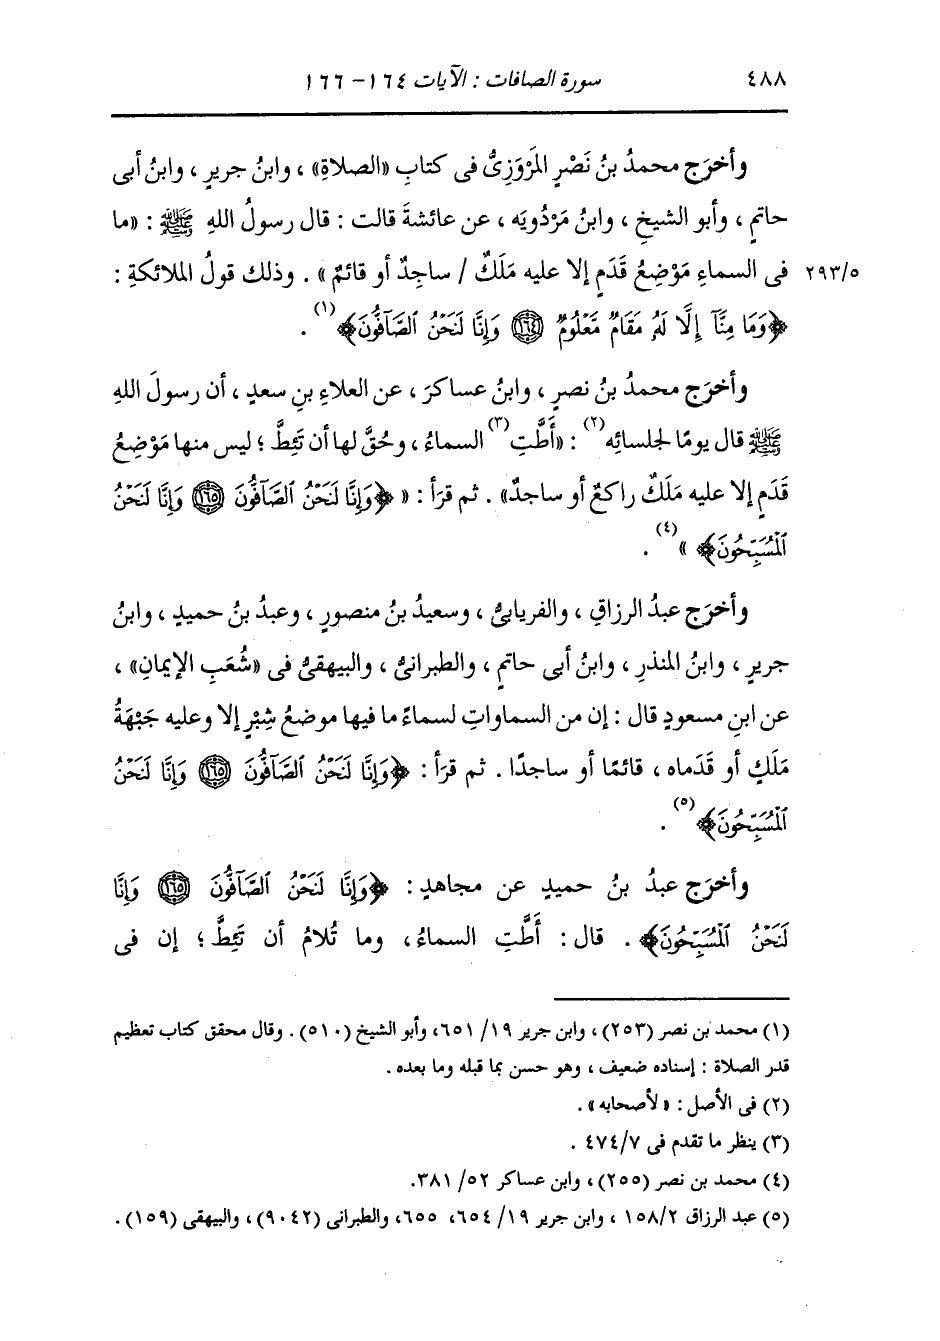 ٤٨٨ سورة الصافات : الآيات ١٦٤ - ١٦٦
وأخرَج محمدُ بنُ نَصْرٍ المَرْوَزِىُّ فى كتابِ «الصلاةِ» ، وابنُ جريرٍ ، وابنُ أبى
حاتمٍ ، وأبو الشيخِ ، وابنُ مَرْدُويَه ، عن عائشةَ قالت : قال رسولُ اللهِ ﷺ : «ما
فى السماءِ مَوْضِعُ قَدَمٍ إلا عليه مَلَكٌ / ساجِدٌ أو قائمٌ» . وذلك قولُ الملائكةِ : ٢٩٣/٥
﴿وَمَا مِنَّآ إِلَّا لَهُۥ مَقَامٌ مَّعْلُومٌ ﴿١٦٤﴾ وَإِنَّا لَنَحْنُ ٱلصَّآفُّونَ﴾(١) .
وأخرَج محمدُ بنُ نصرٍ ، وابنُ عساكرَ ، عن العلاءِ بنِ سعدٍ ، أن رسولَ اللهِ
ﷺ قال يومًا لجلسائِه(٢) : «أَطَّتِ(٣) السماءُ ، وحُقَّ لها أن تَئِطَّ ؛ ليس منها مَوْضِعُ
قَدَمٍ إلا عليه مَلَكٌ راكعٌ أو ساجدٌ» . ثم قرَأ : « ﴿وَإِنَّا لَنَحْنُ ٱلصَّآفُّونَ ﴿١٦٥﴾ وَإِنَّا لَنَحْنُ
ٱلْمُسَبِّحُونَ﴾ »(٤) .
وأخرَج عبدُ الرزاقِ ، والفريابىُّ ، وسعيدُ بنُ منصورٍ ، وعبدُ بنُ حميدٍ ، وابنُ
جريرٍ ، وابنُ المنذرِ ، وابنُ أبى حاتمٍ ، والطبرانىُّ ، والبيهقىُّ فى «شُعَبِ الإيمانِ» ،
عن ابنِ مسعودٍ قال : إن من السماواتِ لسماءً ما فيها موضعُ شِبْرٍ إلا وعليه جَبْهَةُ
مَلَكٍ أو قَدَماه ، قائمًا أو ساجدًا . ثم قرَأ : ﴿وَإِنَّا لَنَحْنُ ٱلصَّآفُّونَ ﴿١٦٥﴾ وَإِنَّا لَنَحْنُ
ٱلْمُسَبِّحُونَ﴾(٥) .
وأخرَج عبدُ بنُ حميدٍ عن مجاهدٍ : ﴿وَإِنَّا لَنَحْنُ ٱلصَّآفُّونَ ﴿١٦٥﴾ وَإِنَّا
لَنَحْنُ ٱلْمُسَبِّحُونَ﴾ . قال : أَطَّتِ السماءُ ، وما تُلامُ أن تَئِطَّ ؛ إن فى
(١) محمد بن نصر (٢٥٣) ، وابن جرير ١٩/ ٦٥١، وأبو الشيخ (٥١٠) . وقال محقق كتاب تعظيم
قدر الصلاة : إسناده ضعيف ، وهو حسن بما قبله وما بعده .
(٢) فى الأصل : «لأصحابه» .
(٣) ينظر ما تقدم فى ٤٧٤/٧ .
(٤) محمد بن نصر (٢٥٥) ، وابن عساكر ٥٢/ ٣٨١.
(٥) عبد الرزاق ١٥٨/٢ ، وابن جرير ١٩/ ٦٥٤، ٦٥٥، والطبرانى (٩٠٤٢) ، والبيهقى (١٥٩) .